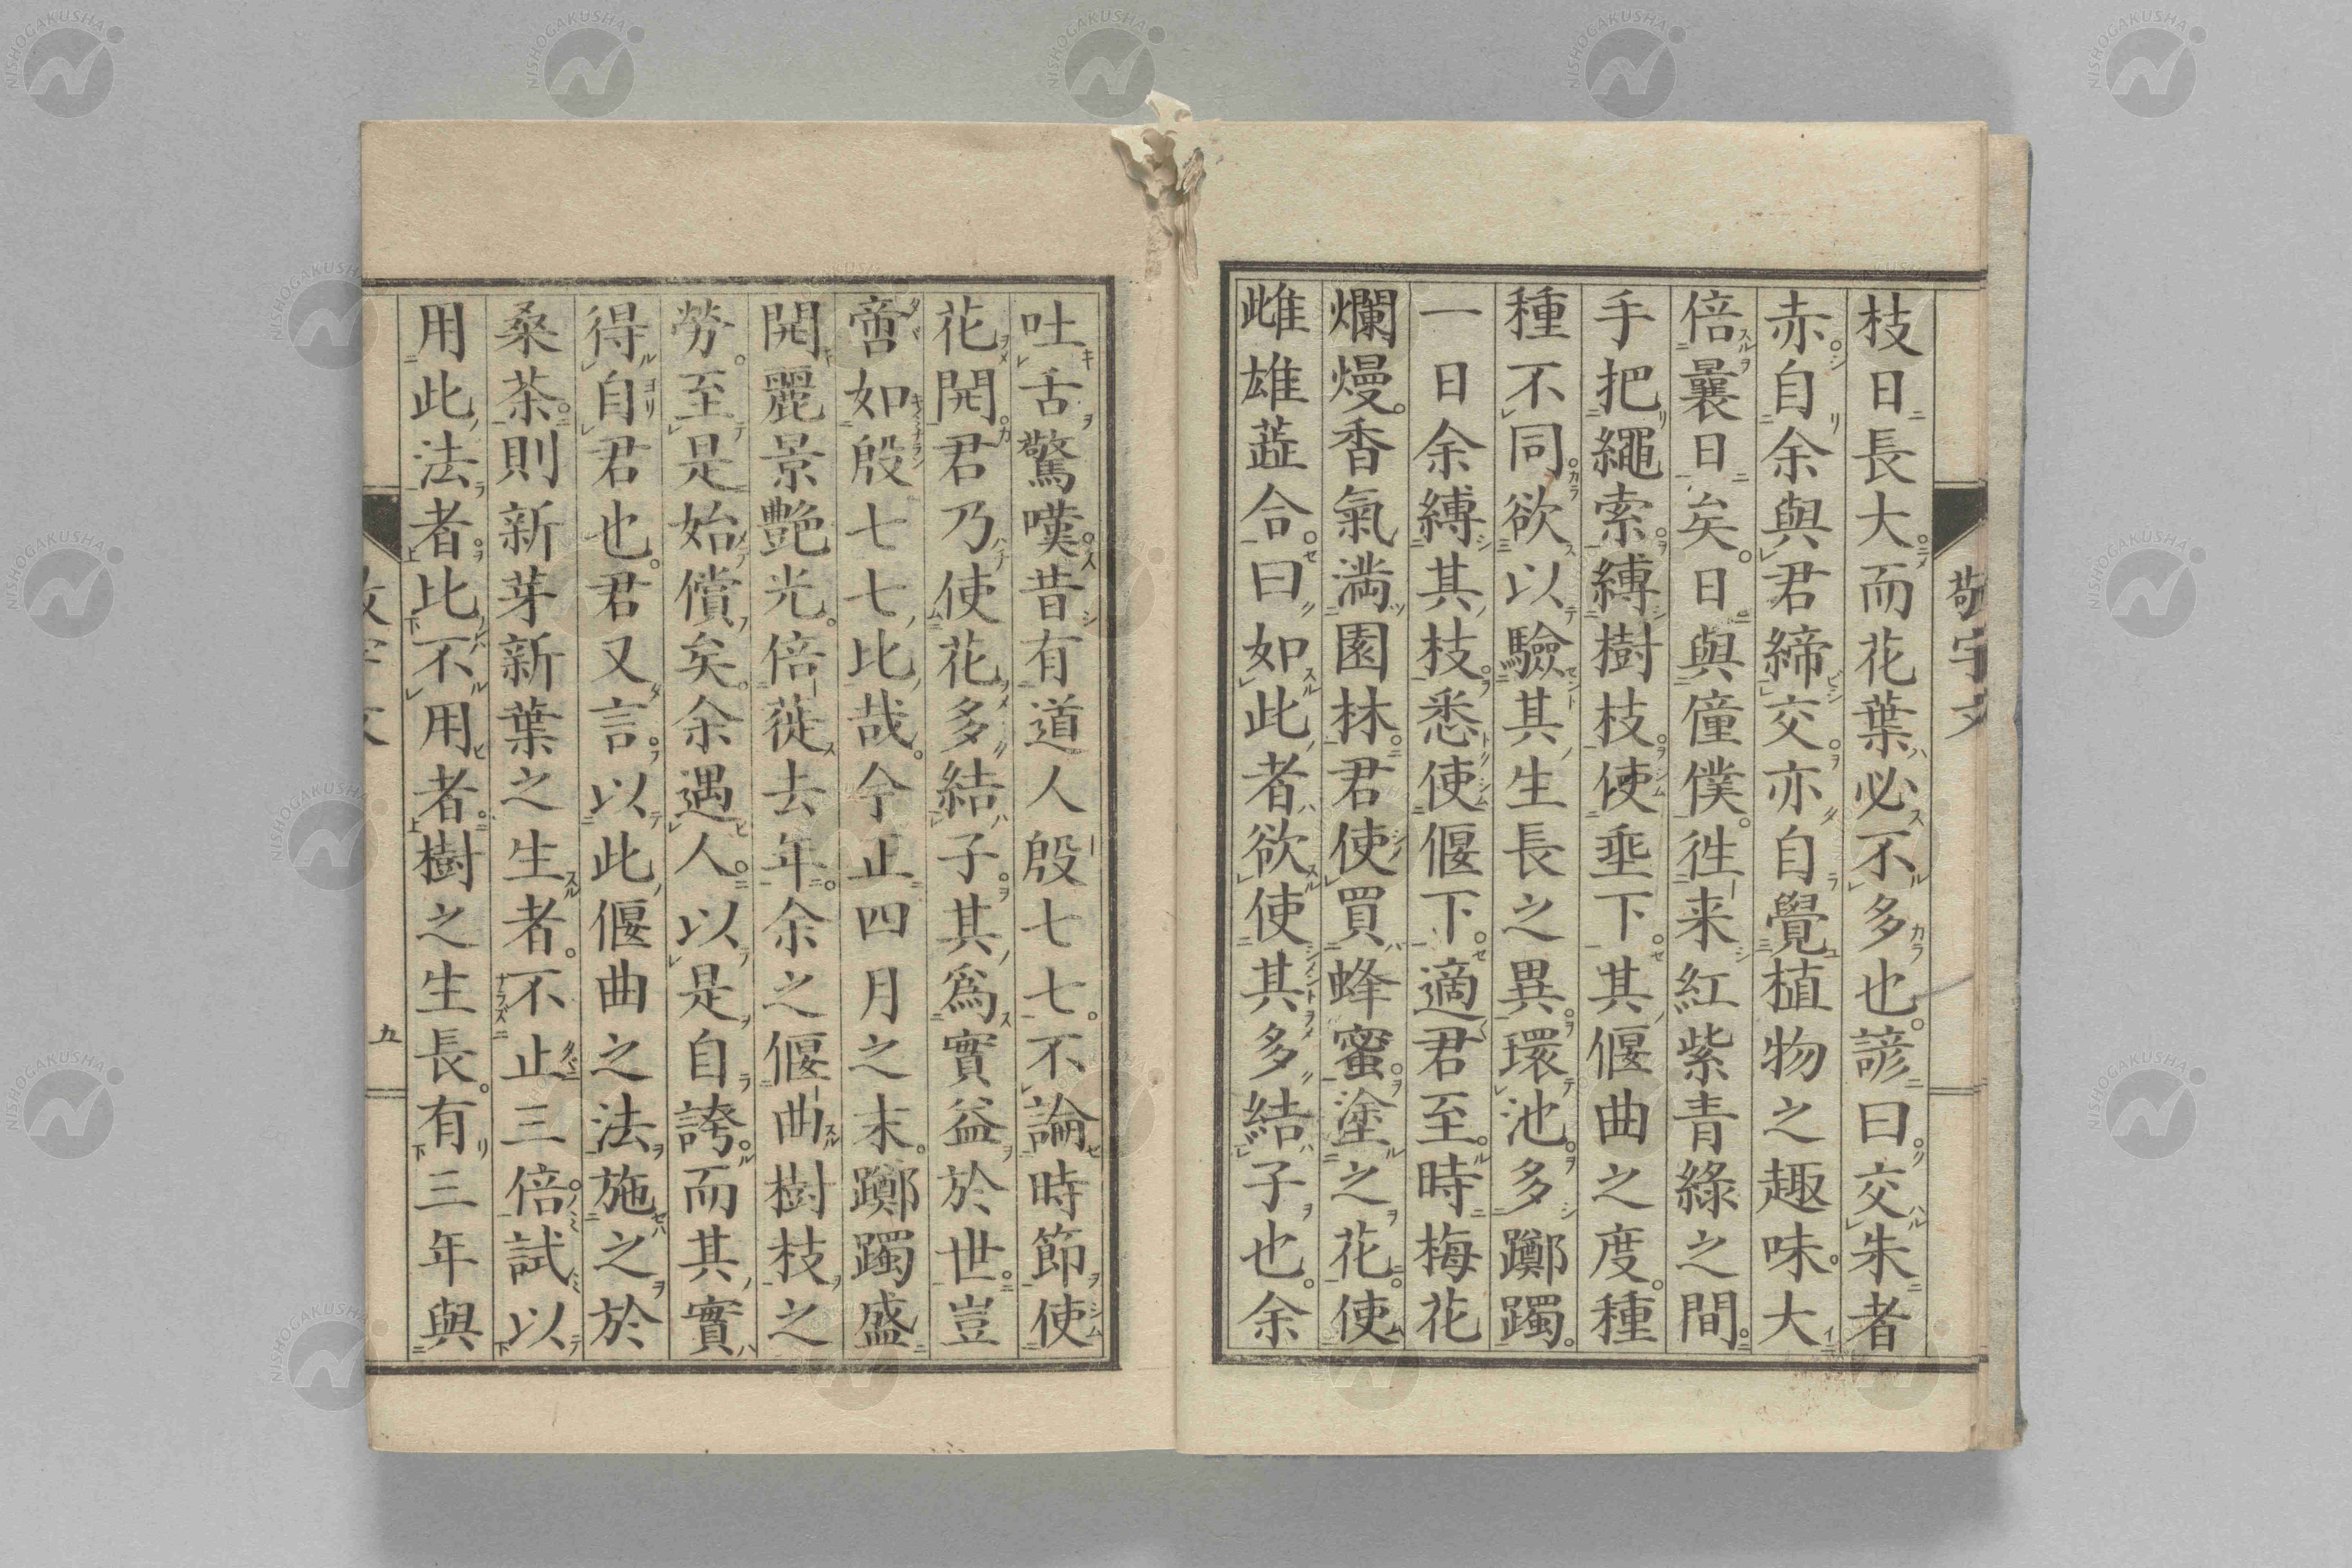 枝日長大而花葉必不多也諺曰交朱者
赤自余與君締交亦自覺植物之趣味大
倍曩日矣日與僮僕徃来紅紫青綠之間
手把繩索縛樹枝使垂下其偃曲之度種
種不同欲以驗其生長之異環池多躑躅
一日余縛其枝悉使偃下適君至時梅花
爛熳香氣滿園林君使買蜂蜜塗之花使
雌雄蕋合曰如此者欲使其多結子也余
吐舌驚嘆昔有道人殷七七不論時節使
花開君乃使花多結子其爲實益於世豈
啻如殷七七比哉今止四月之末躑躅盛
開麗景艶光倍蓰去年余之偃曲樹枝之
勞至是始償矣余遇人以是自誇而其實
得自君也君又言以此偃曲之法施之於
桑茶則新芽新葉之生者不止三倍試以
用此法者比不用者樹之生長有三年與
敬宇文
五